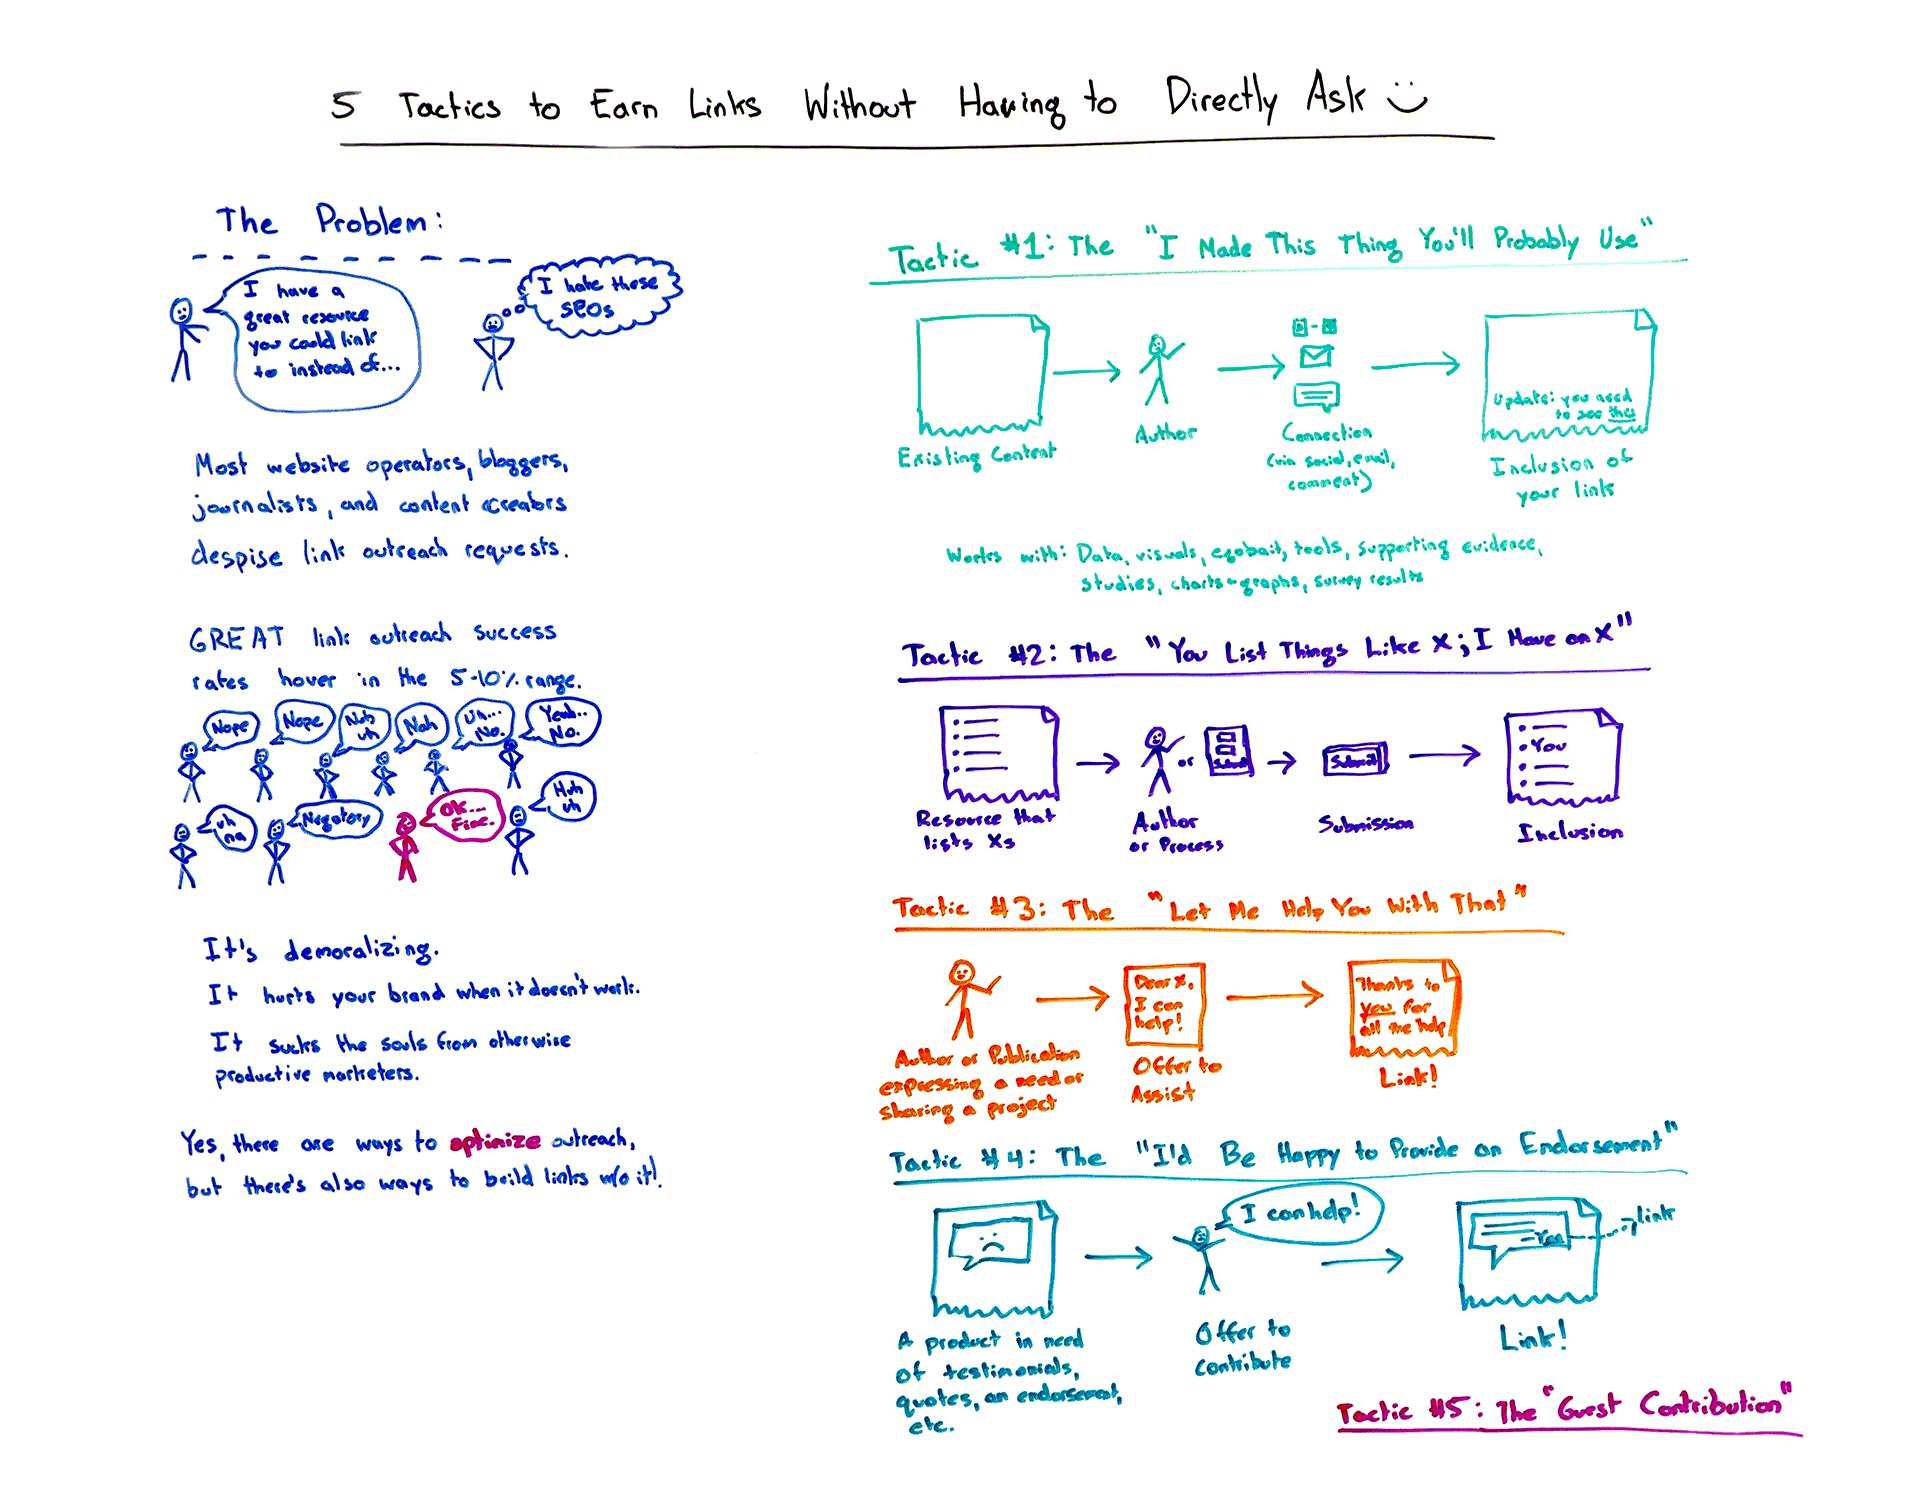 5 Tactics to Earn Links Without Having to Directly Ask
The Problem:
I have a
great resource
you could link
to instead of...
I hate these
SEOs
Most website operators, bloggers,
journalists, and content creators
despise link outreach requests.
GREAT link outreach success
rates hover in the 5-10% range.
Nope
Nope
Nuh
uh
Nah
Uh...
No.
Yeah..
No.
uh
na
Negatory
Ok...
Fine.
Huh
uh
It's demoralizing.
It hurts your brand when it doesn't work.
It sucks the souls from otherwise
productive marketers.
Yes, there are ways to optimize outreach,
but there's also ways to build links w/o it!
Tactic #1: The "I Made This Thing You'll Probably Use"
Existing Content
Author
Connection
(via social, email,
comment)
Update: you need
to see this
Inclusion of
your link
Works with: Data, visuals, egobait, tools, supporting evidence,
studies, charts + graphs, survey results
Tactic #2: The "You List Things Like X; I Have an X"
Resource that
lists Xs
or
Submit
Author
or Process
Submit
Submission
You
Inclusion
Tactic #3: The "Let Me Help You With That"
Author or Publication
expressing a need or
sharing a project
Dear X,
I can
help!
Offer to
Assist
Thanks to
you for
all the help
Link!
Tactic #4: The "I'd Be Happy to Provide an Endorsement"
A product in need
of testimonials,
quotes, an endorsement,
etc.
I can help!
Offer to
contribute
-You
link
Link!
Tactic #5: The "Guest Contribution"